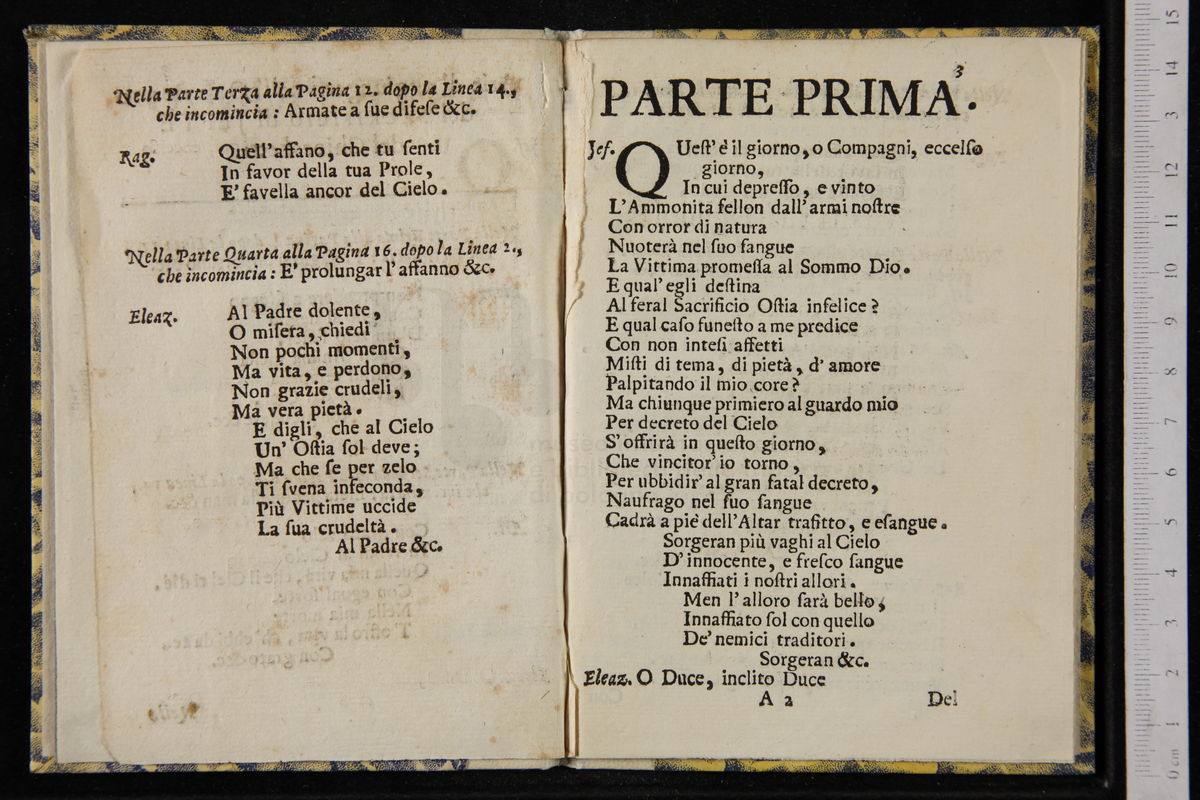 Nella Parte Terza alla Pagina 12. dopo la Linea 14.,
che incomincia : Armate a ſue difeſe &c.
Rag. Quell'affano, che tu ſenti
In favor della tua Prole,
E' favella ancor del Cielo.
Nella Parte Quarta alla Pagina 16. dopo la Linea 2.,
che incomincia : E' prolungar l'affanno &c.
Eleaz. Al Padre dolente,
O miſera, chiedi
Non pochi momenti,
Ma vita, e perdono,
Non grazie crudeli,
Ma vera pietà.
E digli, che al Cielo
Un' Oſtia ſol deve;
Ma che ſe per zelo
Ti ſvena infeconda,
Più Vittime uccide
La ſua crudeltà.
Al Padre &c.
3
PARTE PRIMA.
Jef. QUeſt' è il giorno, o Compagni, eccelſo
giorno,
In cui depreſſo, e vinto
L'Ammonita fellon dall' armi noſtre
Con orror di natura
Nuoterà nel ſuo ſangue
La Vittima promeſſa al Sommo Dio.
E qual' egli deſtina
Al feral Sacrificio Oſtia infelice?
E qual caſo funeſto a me predice
Con non inteſi affetti
Miſti di tema, di pietà, d' amore
Palpitando il mio core?
Ma chiunque primiero al guardo mio
Per decreto del Cielo
S' offrirà in queſto giorno,
Che vincitor' io torno,
Per ubbidir' al gran fatal decreto,
Naufrago nel ſuo ſangue
Cadrà a piè dell'Altar trafitto, e eſangue.
Sorgeran più vaghi al Cielo
D' innocente, e freſco ſangue
Innaffiati i noſtri allori.
Men l' alloro ſarà bello,
Innaffiato ſol con quello
De' nemici traditori.
Sorgeran &c.
Eleaz. O Duce, inclito Duce
A 2 Del
0 cm 1 2 3 4 5 6 7 8 9 10 11 12 13 14 15